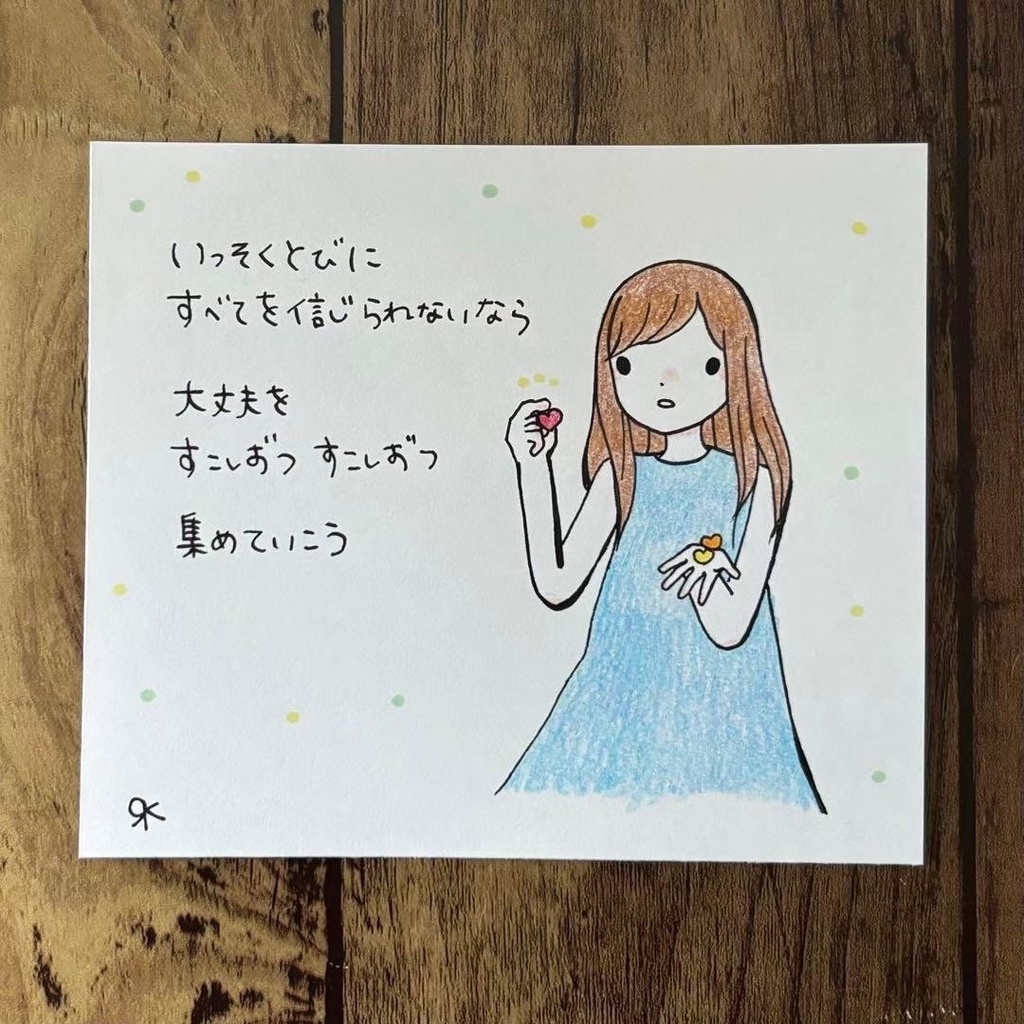 いっそくとびに
すべてを信じられないなら
大丈夫を
すこしずつ すこしずつ
集めていこう